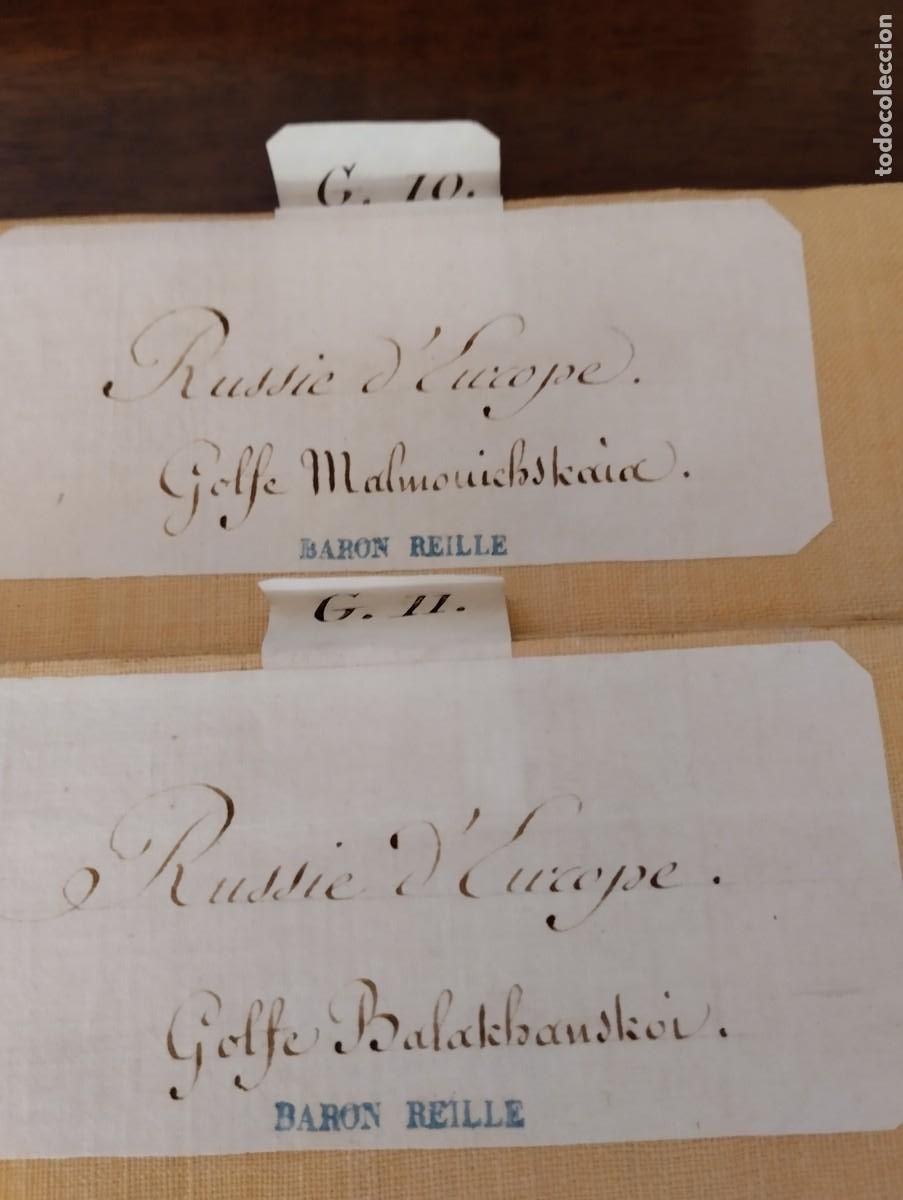 G. 10.
Russie d'Europe.
Golfe Malmouichskaïa.
BARON REILLE
G. 11.
Russie d'Europe.
Golfe Balakhanskoi.
BARON REILLE
todocoleccion